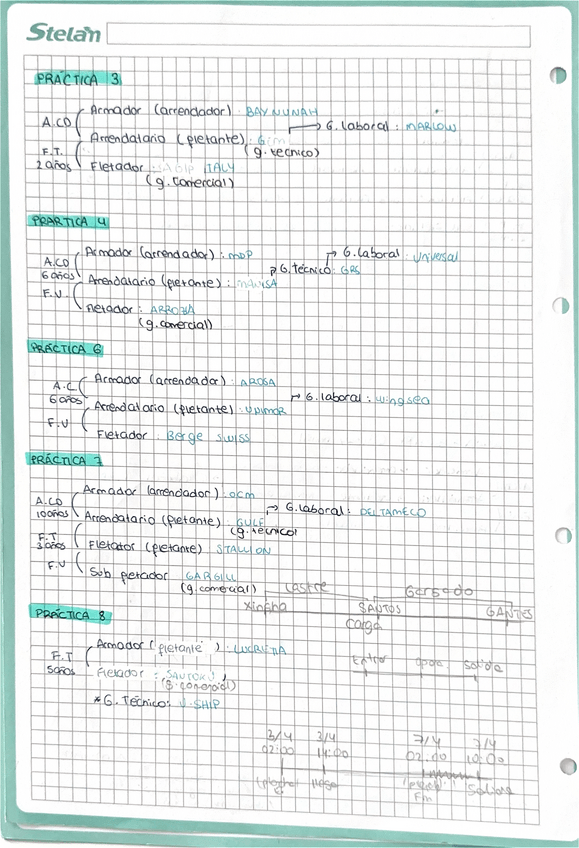 Stelan
PRÁCTICA 3
Armador (arrendador): BAYNUNAH
A.CO
G. laboral: MARLOW
Arrendatario (fletante):
F.T.
(g. técnico)
2 años
Fletador: ITALY
(g. comercial)
PRÁRTICA 4
Armador (arrendador): MDP
G. Laboral: Universal
A.CO
6 años
G. Técnico: GRS
Arrendatario (fletante):
F.V.
Fletador:
(g. comercial)
PRÁCTICA 6
Armador (arrendador): AROSA
A.C
6 años
G. laboral: wingsea
Arrendatario (fletante): UNIMAR
F.V
Fletador: Berge swiss
PRÁCTICA 7
Armador (arrendador): OCM
A.CO
10 años
G. Laboral: DELTAMECO
Arrendatario (fletante) GULF
(g. técnico)
F.T
3 años
Fletator (fletante) STALLION
F.V
Sub fletador GARGILL
(g. comercial)
Lastre
Xingha
SANTOS
GANTES
carga
PRÁCTICA 8
Armador (fletante):
F.T
5 años
Fletador:
(g. comercial)
* G. Técnico: V-SHIP
Entrar
salida
3/4
3/4
7/4
7/4
02:00
14:00
02:00
10:00
llega
Fin